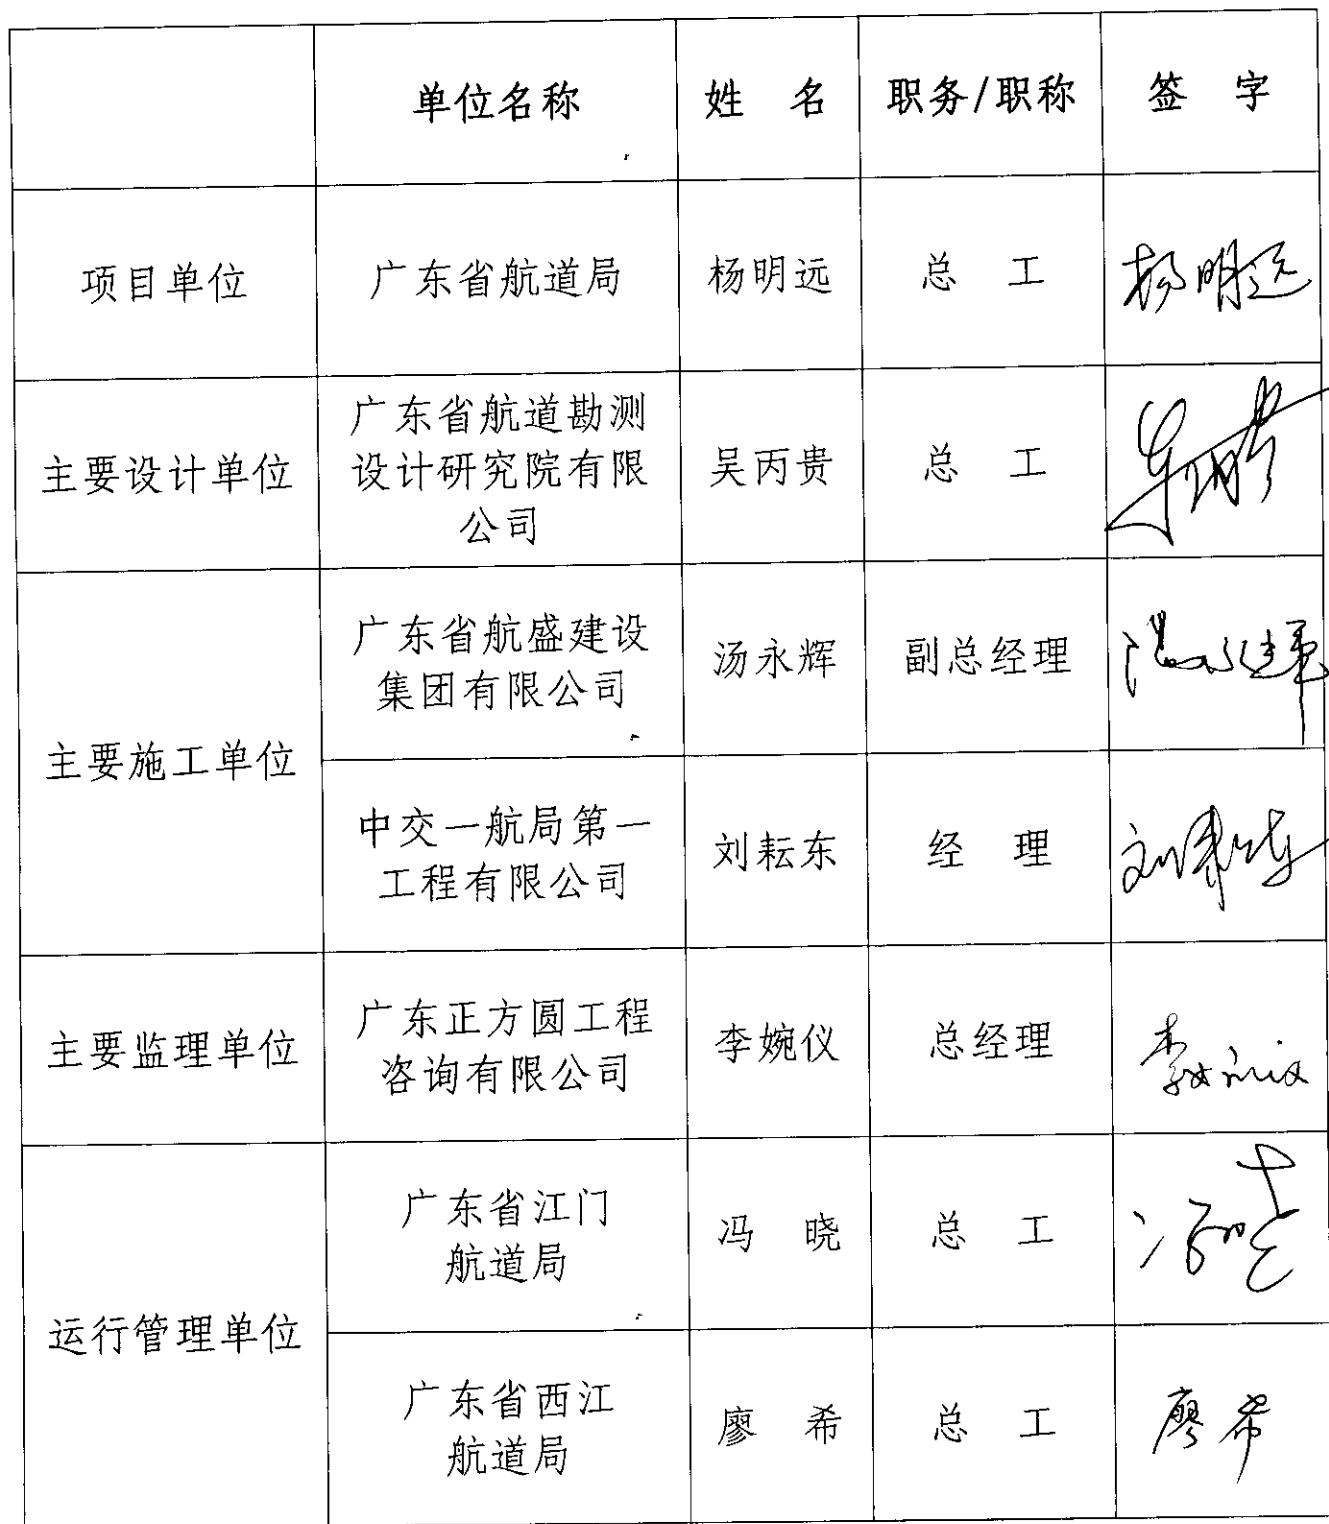 单位名称 姓 名 职务/职称 签 字
项目单位 广东省航道局 杨明远 总 工 杨明远
主要设计单位
广东省航道勘测
设计研究院有限
公司
吴丙贵 总 工
主要施工单位
广东省航盛建设
集团有限公司
汤永辉 副总经理
中交一航局第一
工程有限公司
刘耘东 经 理
主要监理单位
广东正方圆工程
咨询有限公司
李婉仪 总经理 李婉仪
运行管理单位
广东省江门
航道局
冯 晓 总 工 冯晓
广东省西江
航道局
廖 希 总 工 廖希